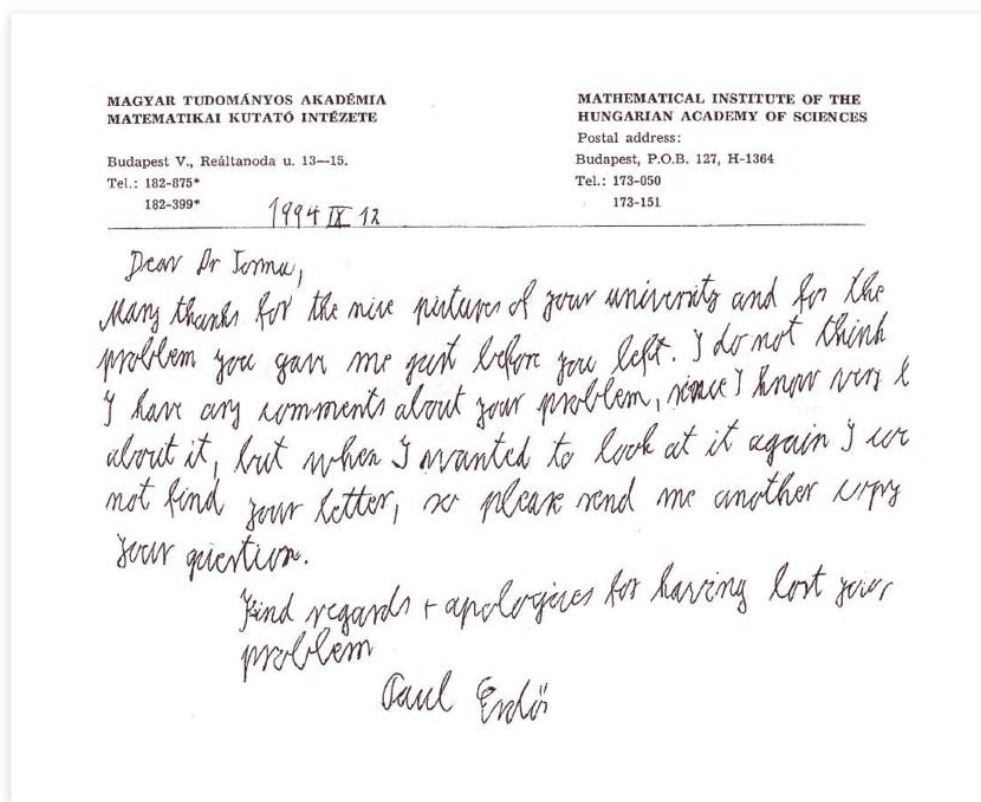 MAGYAR TUDOMÁNYOS AKADÉMIA
MATEMATIKAI KUTATÓ INTÉZETE
Budapest V., Reáltanoda u. 13—15.
Tel.: 182-875*
182-399*
MATHEMATICAL INSTITUTE OF THE
HUNGARIAN ACADEMY OF SCIENCES
Postal address:
Budapest, P.O.B. 127, H-1364
Tel.: 173-050
173-151
1994 IX 12
Dear Dr
Many thanks for the nice pictures of your university and for the
problem you gave me just before you left. I do not think
I have any comments about your problem, since I know very l
about it, but when I wanted to look at it again I co
not find your letter, so please send me another copy
your question.
Kind regards + apologies for having lost your
problem
Paul Erdős